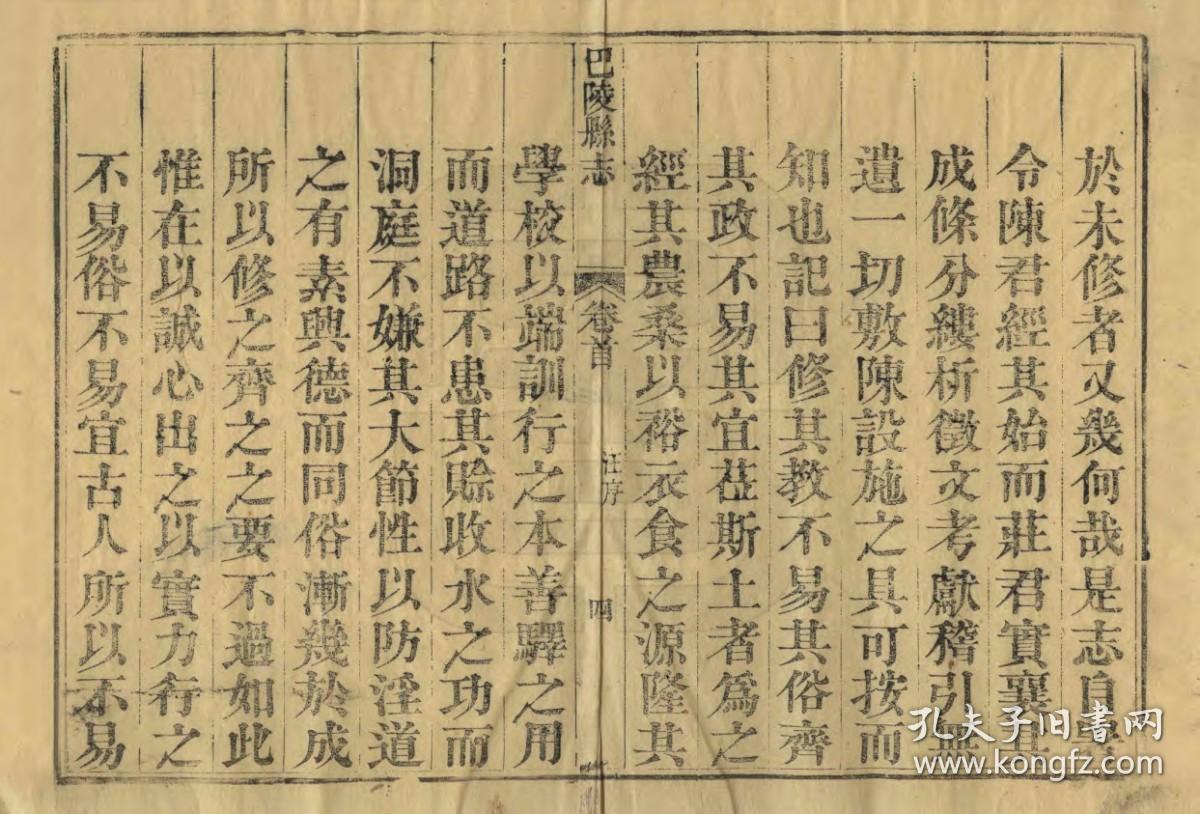 於未修者又幾何哉是志自
令陳君經其始而莊君實襄其
成條分縷析徵文考獻稽引無
遺一切敷陳設施之具可按而
知也記曰修其教不易其俗齊
其政不易其宜茲斯土者為之
經其農桑以裕衣食之源隆其
巴陵縣志
卷首
汪序
四
學校以端訓行之本善驛之用
而道路不患其賒收水之功而
洞庭不嫌其大節性以防淫道
之有素興德而同俗漸幾於成
所以修之齊之之要不過如此
惟在以誠心出之以實力行之
不易俗不易宜古人所以不易
孔夫子旧書网
www.kongfz.com